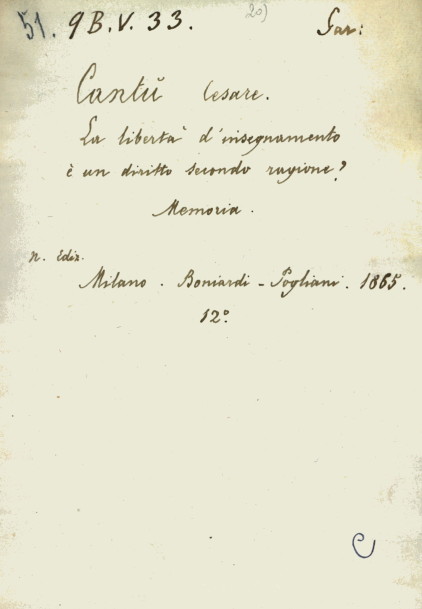 51. 9 B. V. 33. 20)
Cantù Cesare.
La libertà d'insegnamento
è un diritto secondo ragione?
Memoria.
n. Ediz.
Milano. Boniardi-Pogliani. 1865.
12º
C